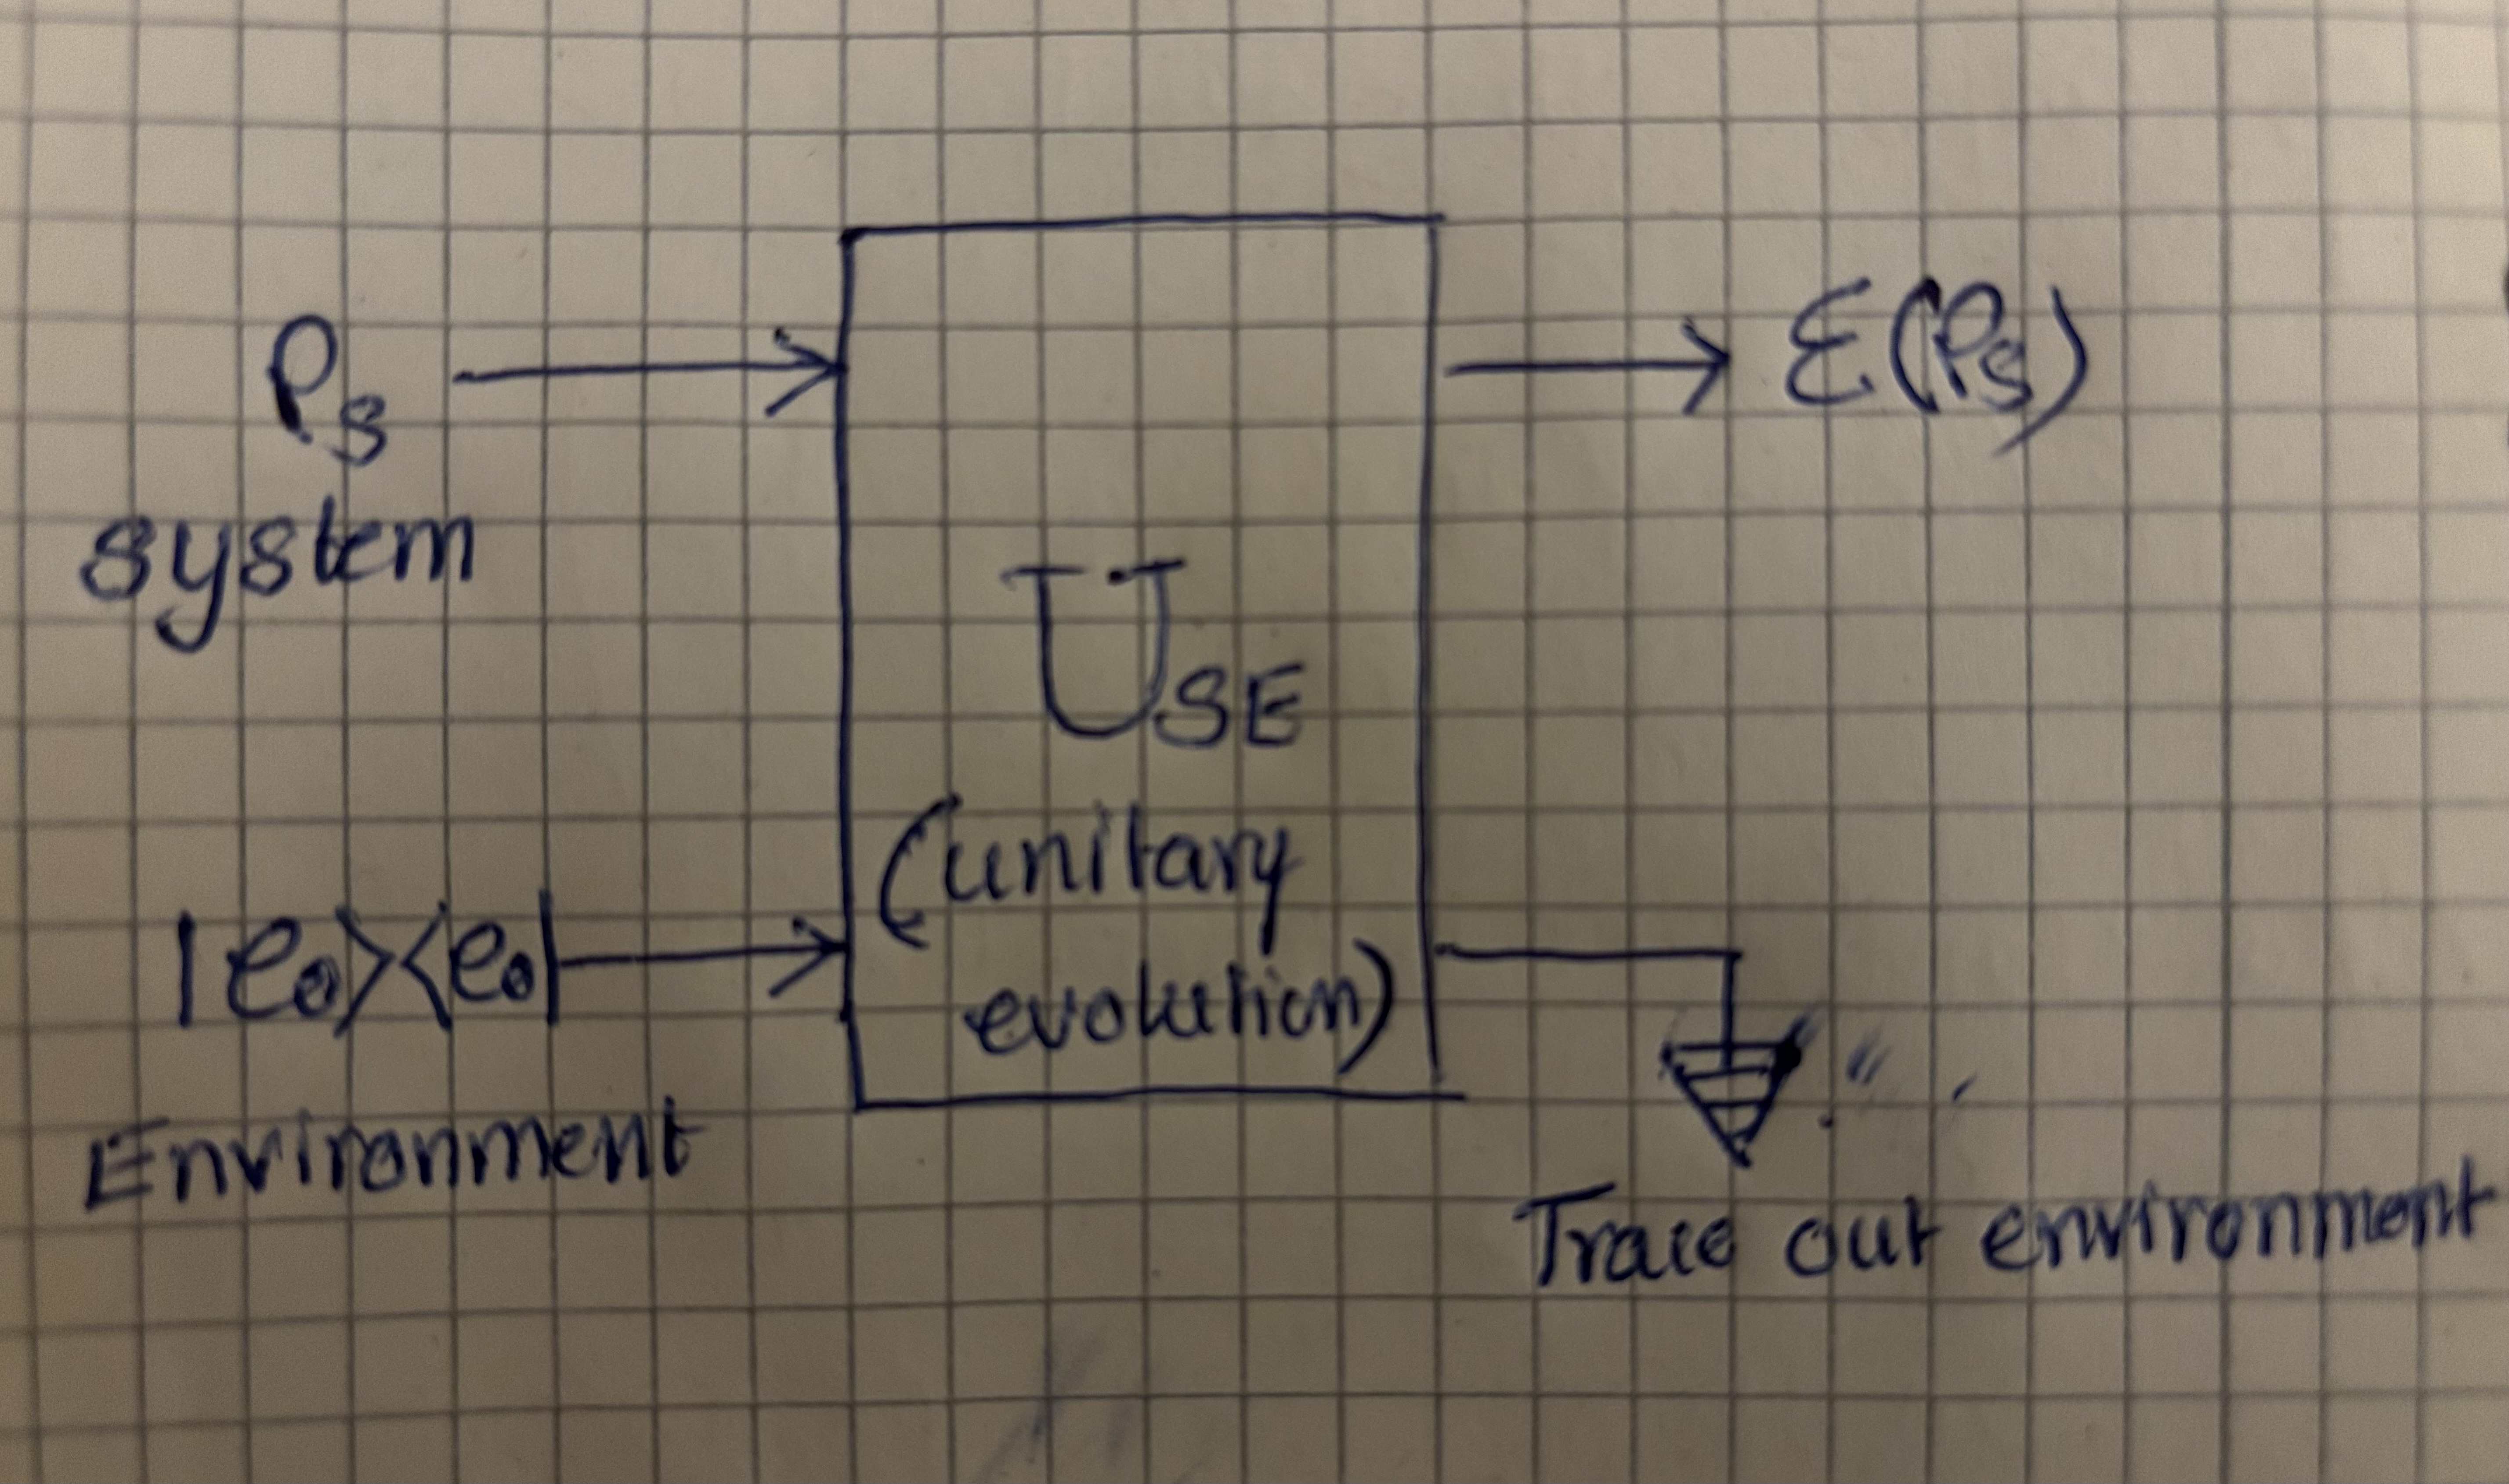 ρ_S
system
|e₀><e₀|
Environment
U_SE
(unitary
evolution)
ℰ(ρ_S)
Trace out environment